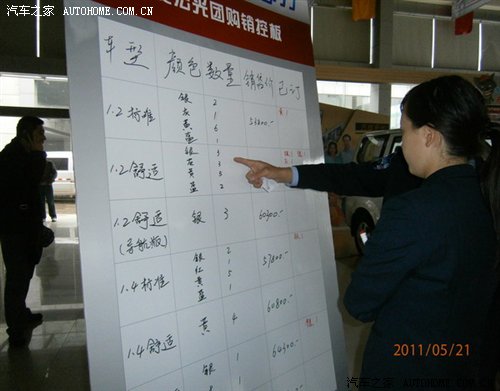 汽车之家 AUTOHOME.COM.CN
汽车之家 AUTOHOME.COM.CN
法兰克团购销控板
车型 颜色 数量 销售价 已订
1.2标准 银 2 53800.-
灰 1
黄 6
蓝 1
1.2舒适 银 3
灰 3
黄 5
蓝 2
1.2舒适 银 3 60300.-
(导航版)
1.4标准 银 2 57800.-
红 1
黄 5
蓝 1
1.4舒适 黄 4 60800.-
1.4舒适 银 1 64300.-
2011/05/21